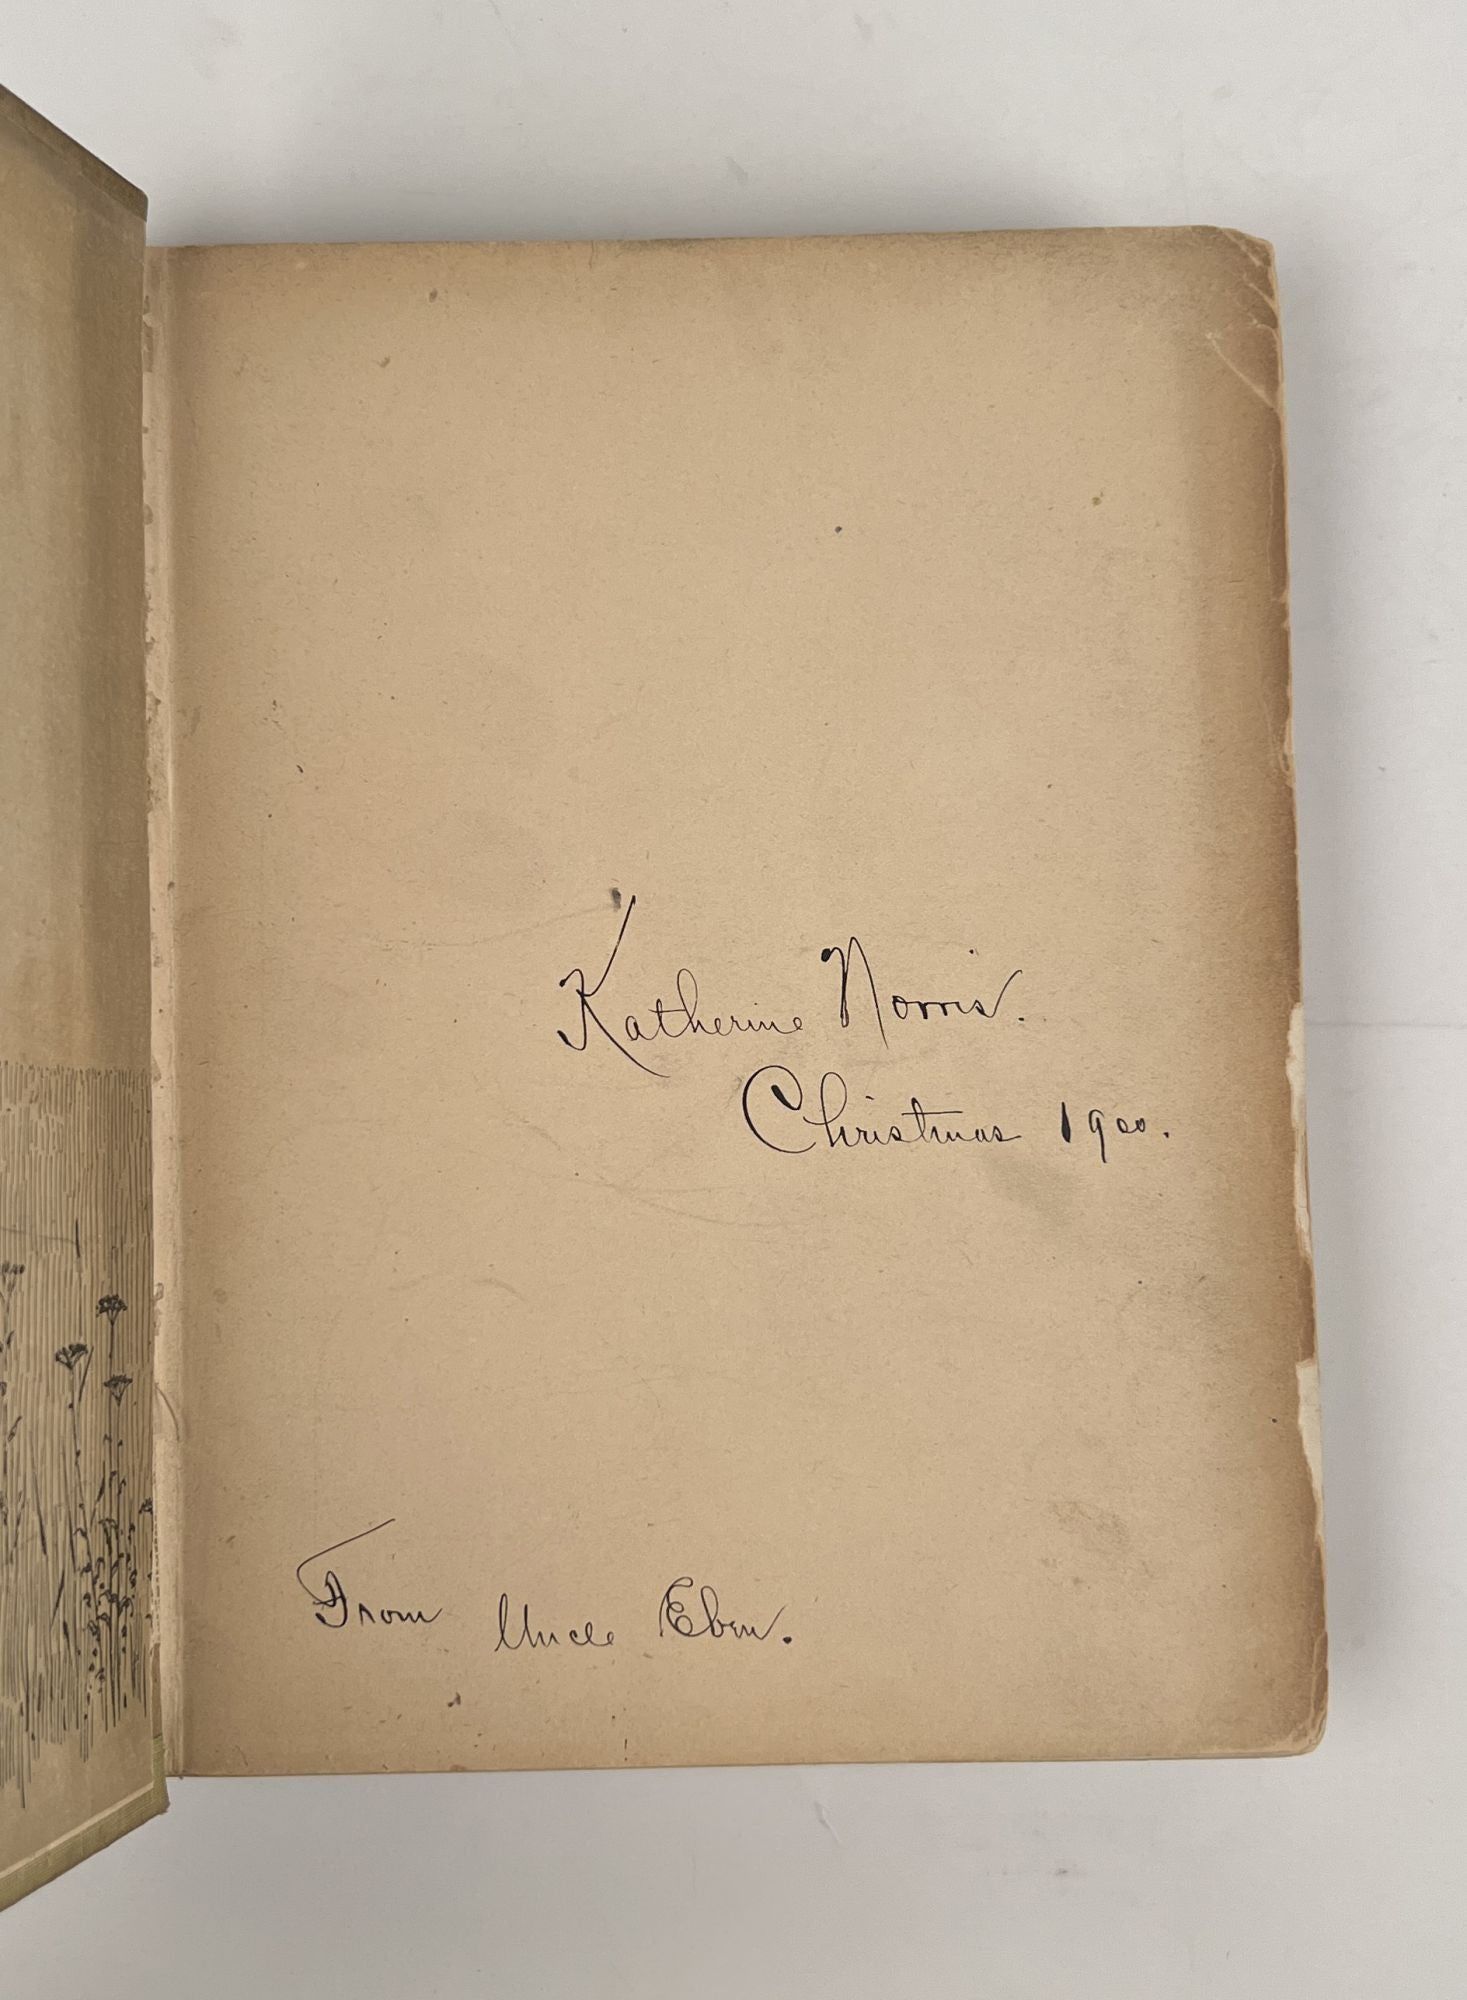 Katherine Norris.
Christmas 1900.
From Uncle Eben.